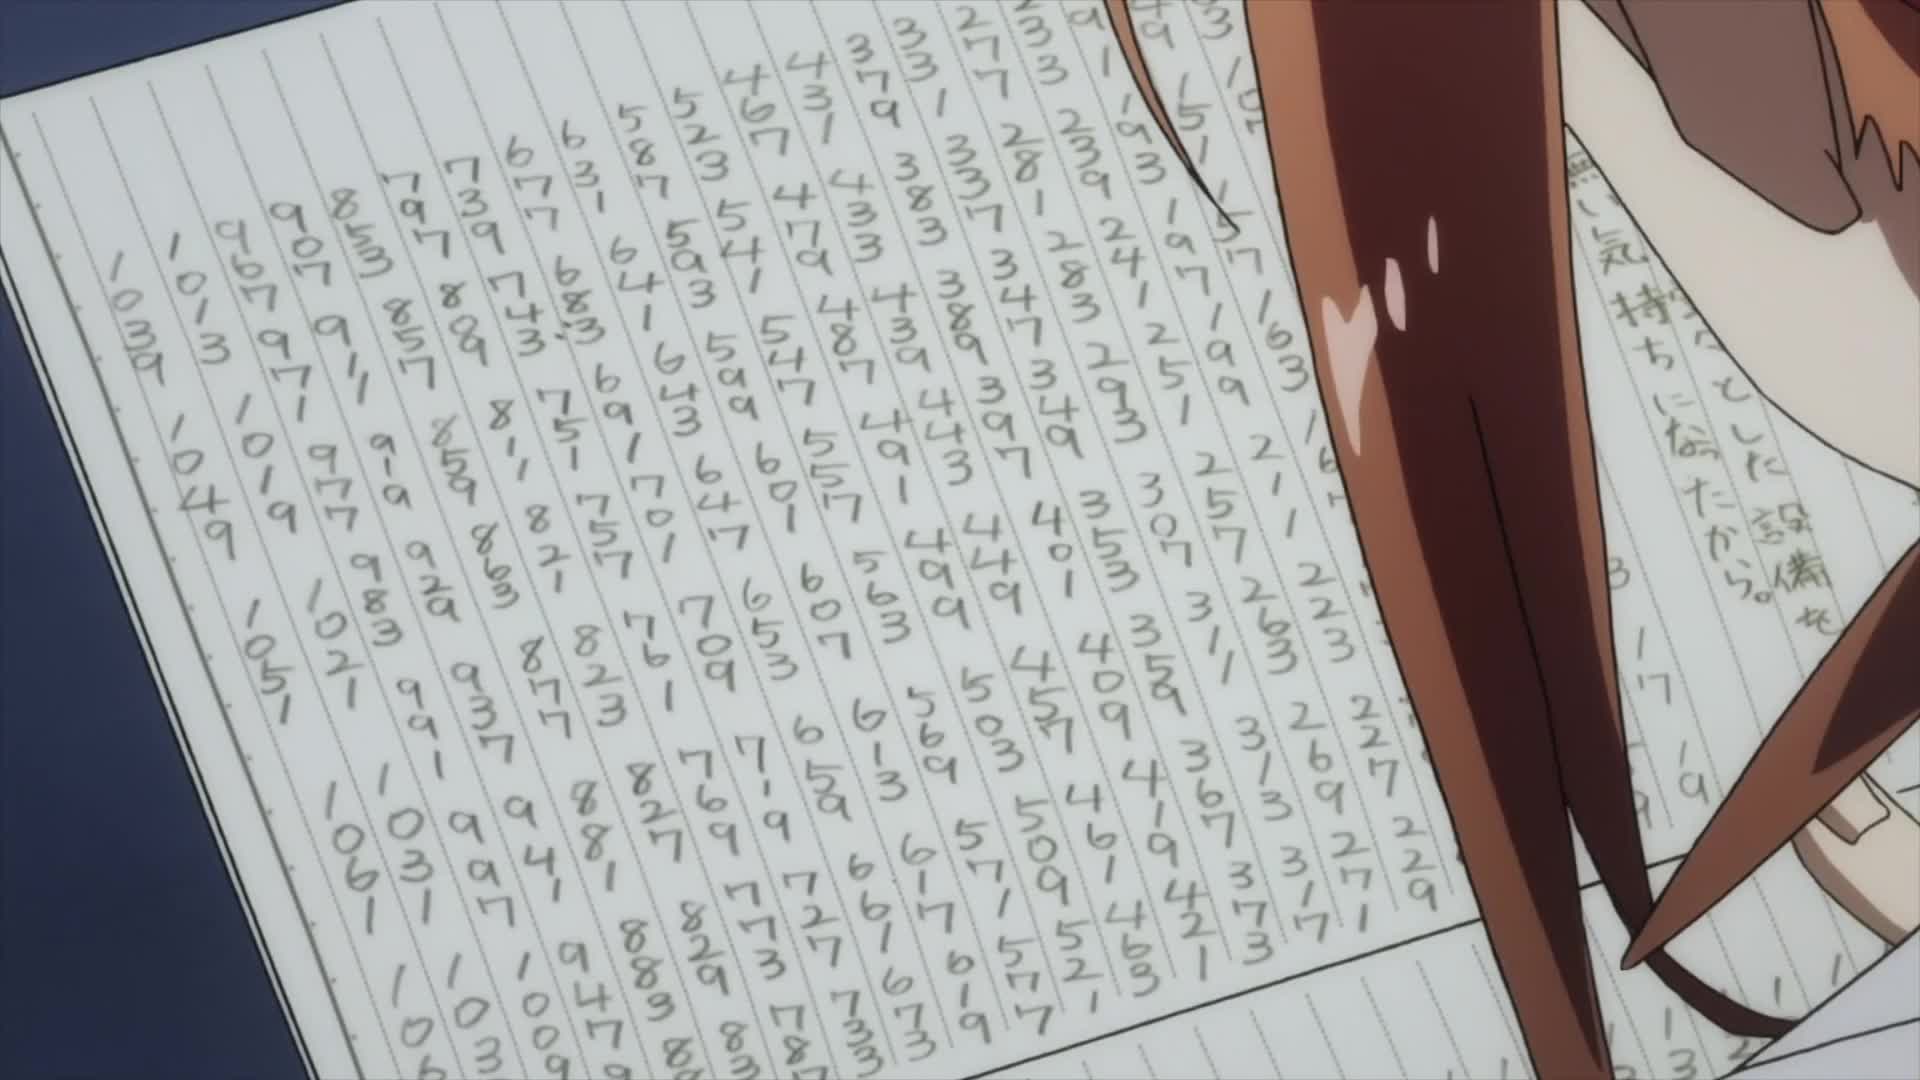 とした設備を
無い気持ちになったから。
19
17
107
149 151 157 163 167
191 193 197 199 211 223 227 229
233 239 241 251 257 263 269 271
277 281 283 293 307 311 313 317
331 337 347 349 353 359 367 373
379 383 389 397 401 409 419 421
431 433 439 443 449 457 461 463
467 479 487 491 499 503 509 521
523 541 547 557 563 569 571 577
587 593 599 601 607 613 617 619
631 641 643 647 653 659 661 673
677 683 691 701 709 719 727 733
739 743 751 757 761 769 773 787
797 809 811 821 823 827 829 83
853 857 859 863 877 881 883 88
907 911 919 929 937 941 947 9
967 971 977 983 991 997 1009
1013 1019 1021 1031 103
1039 1049 1051 1061 106